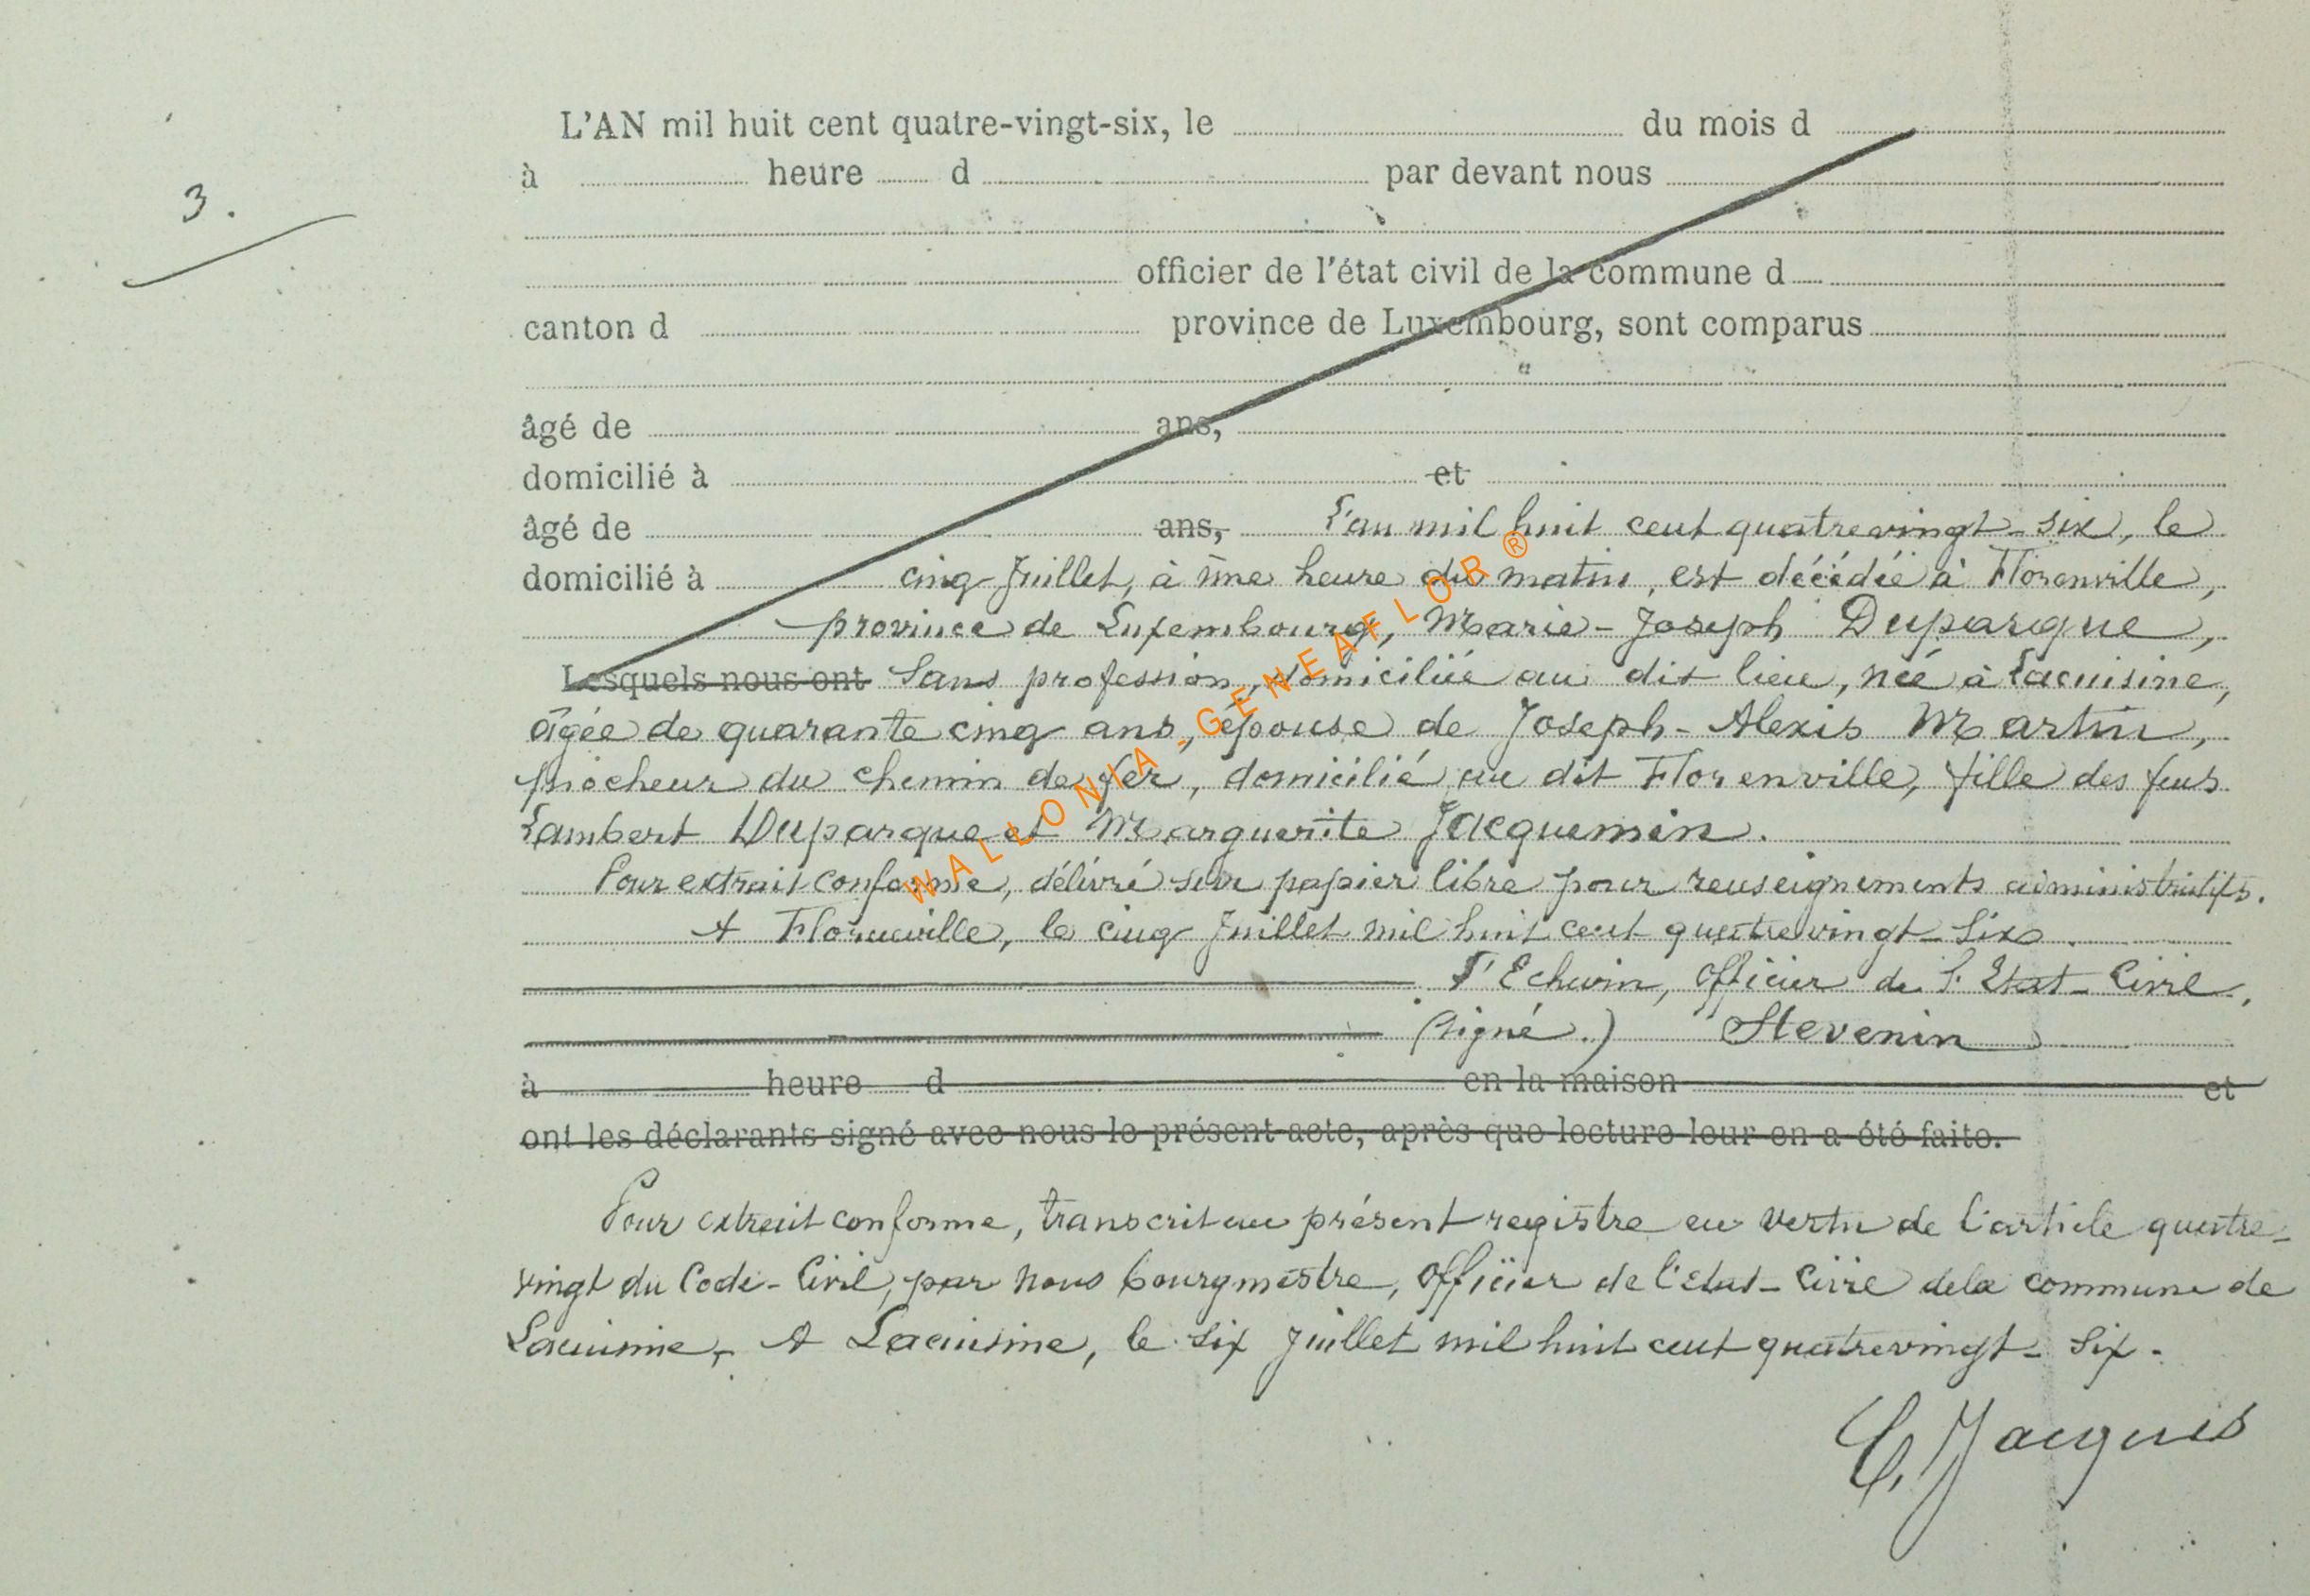 L'AN mil huit cent quatre-vingt-six, le du mois d
à heure d par devant nous
3.
officier de l'état civil de la commune d
canton d province de Luxembourg, sont comparus
âgé de ans,
domicilié à et
âgé de ans, L'an mil huit cent quatrevingt-six, le
domicilié à cinq Juillet, à une heure du matin, est décédée à Florenville,
province de Luxembourg, Marie-Joseph Duparque,
Lesquels nous ont Sans profession, domiciliée au dit lieu, née à Lacuisine,
âgée de quarante cinq ans, épouse de Joseph-Alexis Martin,
piocheur du chemin de fer, domicilié au dit Florenville, fille des feus
Lambert Duparque et Marguerite Jacquemin.
Pour extrait conforme, délivré sur papier libre pour renseignements administratifs.
A Florenville, le cinq Juillet mil huit cent quatrevingt-six.
L'Echevin, Officier de l'Etat-Civil,
(Signé.) Stevenin
à heure d en la maison et
ont les déclarants signé avec nous le présent acte, après que lecture leur en a été faite.
Pour extrait conforme, transcrit au présent registre en vertu de l'article quatre-
vingt du Code-Civil, par nous bourgmestre, Officier de l'Etat-Civil de la commune de
Lacuisine, A Lacuisine, le six Juillet mil huit cent quatrevingt-six.
C. Jacques
WALLONIA_GENEAFLOR ®